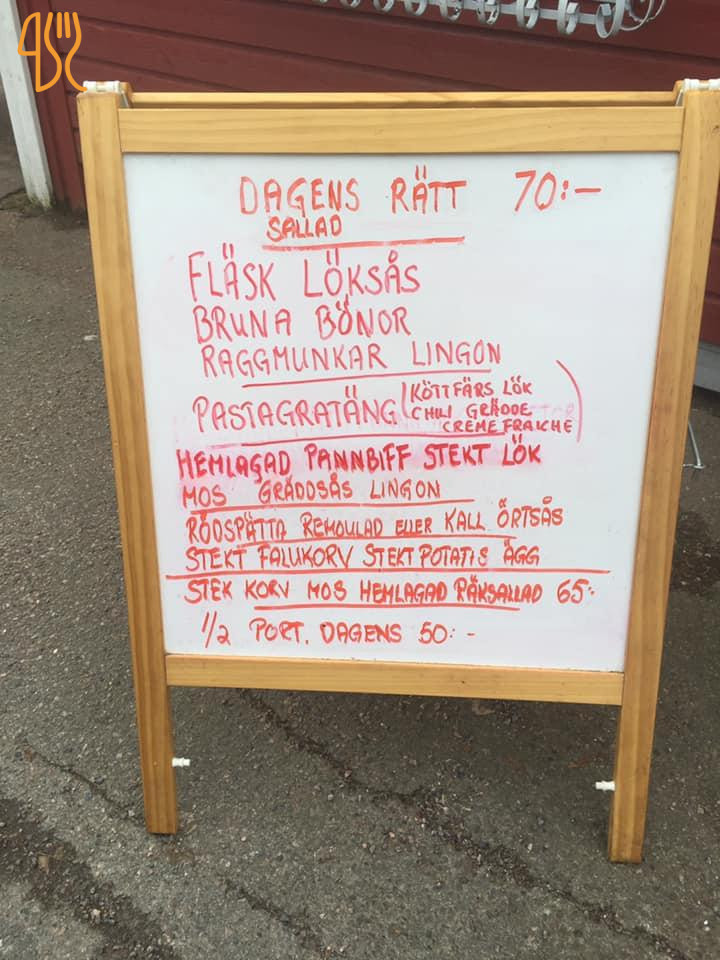 DAGENS RÄTT 70:-
SALLAD
FLÄSK LÖKSÅS
BRUNA BÖNOR
RAGGMUNKAR LINGON
PASTAGRATÄNG (KÖTTFÄRS LÖK
CHILI GRÄDDE
CREME FRAICHE)
HEMLAGAD PANNBIFF STEKT LÖK
MOS GRÄDDSÅS LINGON
RÖDSPÄTTA REMOULAD ELLER KALL ÖRTSÅS
STEKT FALUKORV STEKT POTATIS ÄGG
STEK KORV MOS HEMLAGAD RÄKSALLAD 65:-
1/2 PORT. DAGENS 50:-